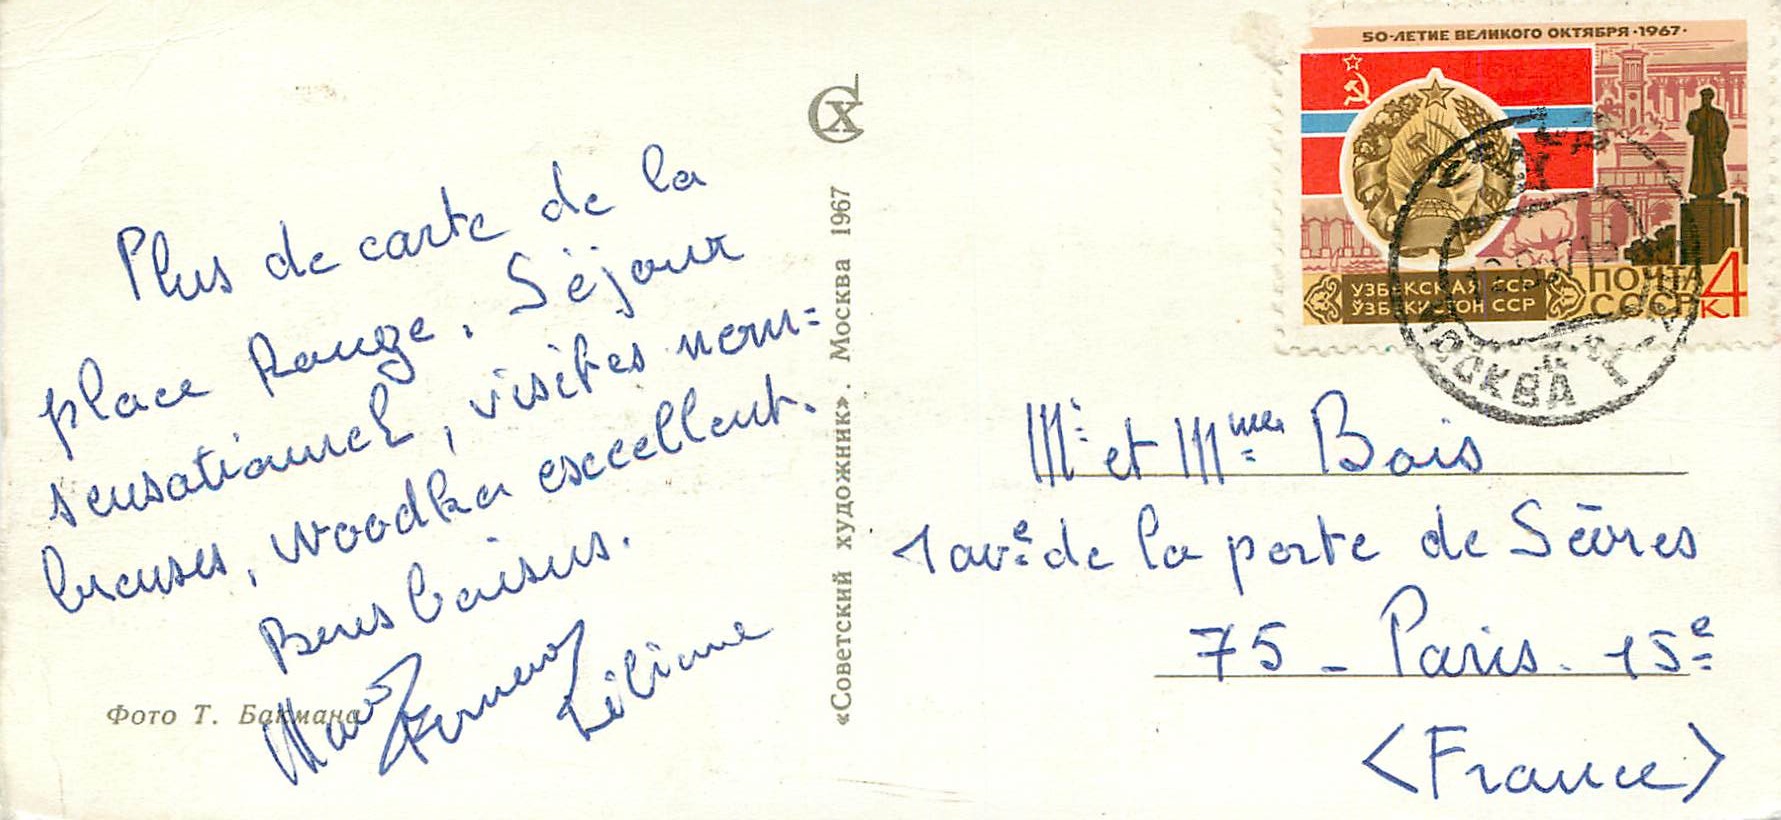 Plus de carte de la
place Rouge. Séjour
sensationnel, visites nom=
breuses, woodka excellent.
Bons baisers.
Liliane
Фото Т. Бакмана
«Советский художник». Москва 1967
СХ
50-ЛЕТИЕ ВЕЛИКОГО ОКТЯБРЯ·1967·
УЗБЕКСКАЯ ССР
ЎЗБЕКИСТОН ССР
ПОЧТА
СССР
4
К
МОСКВА
Mr et Mme Bois
1 ave de la porte de Sèvres
75 - Paris. 15e
<France>